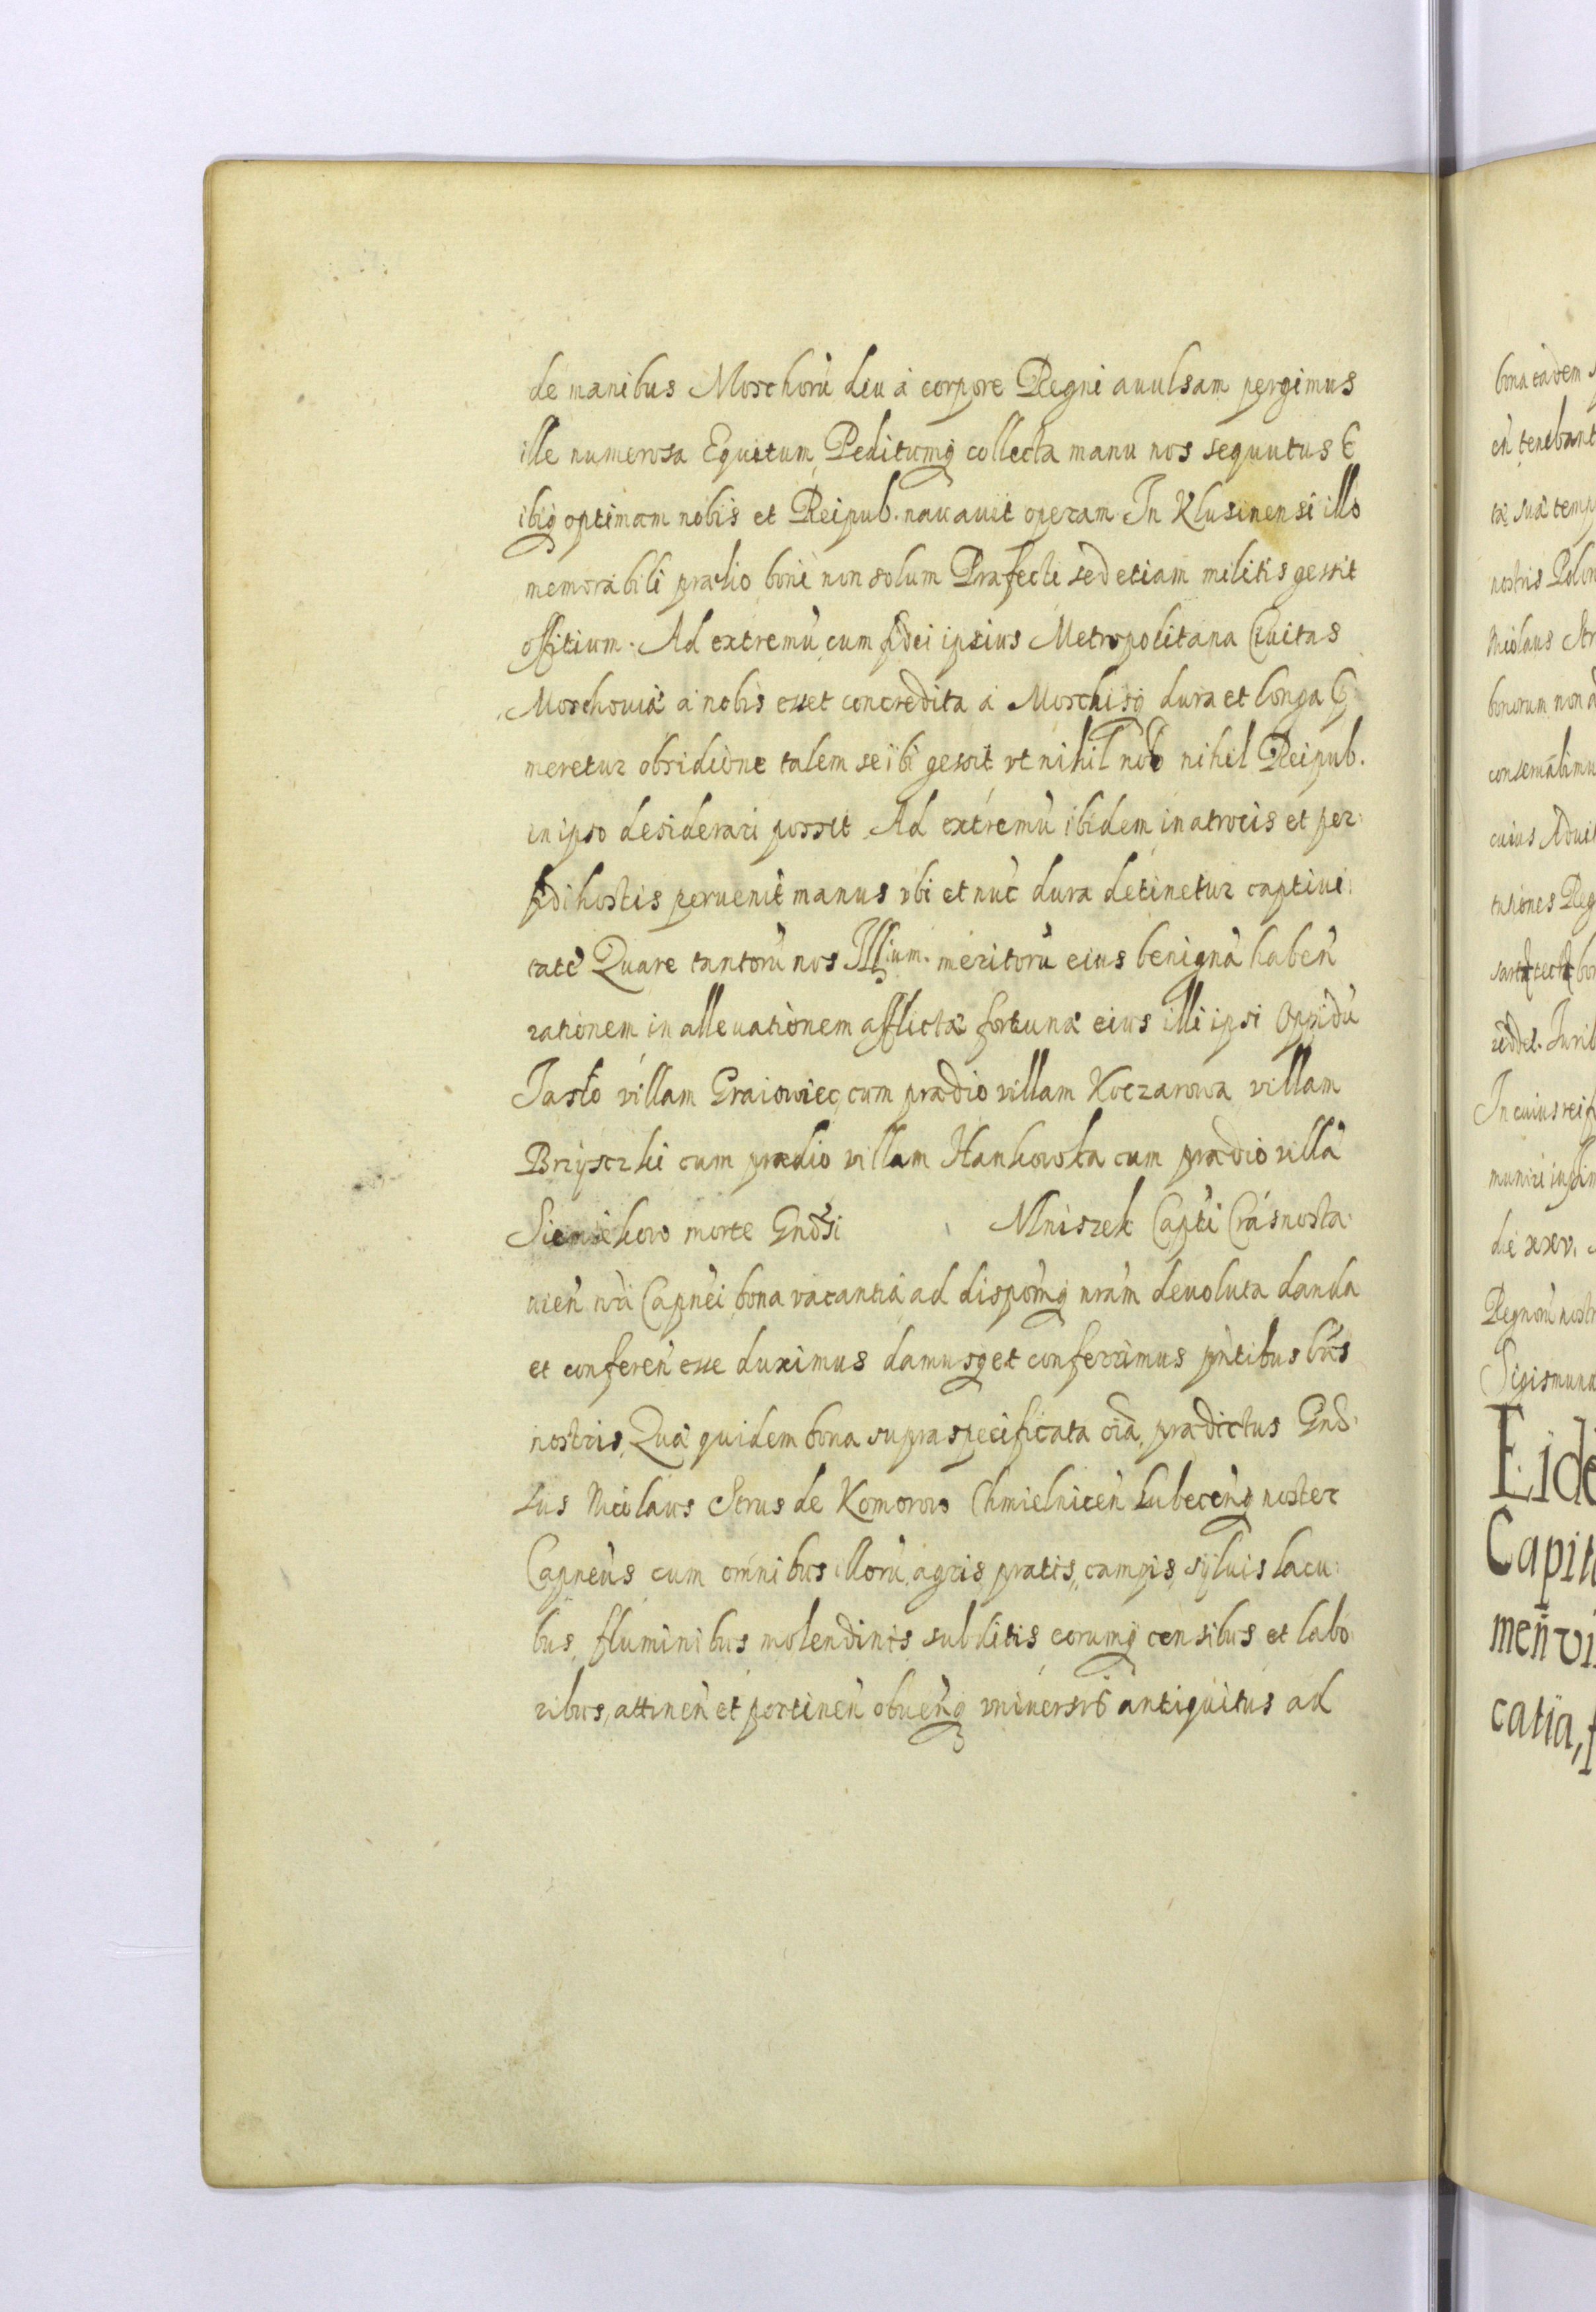 de manibus Moschorũ diu à corpore Regni auulsam pergimus
ille numerosa Equitum, Peditumq collecta manu nos sequutus &
ibiq optimam nobis et Reipub. nauauit operam. In Klusinensi illo
memorabili prælio boni non solum Præfecti sed etiam militis gessit
offitium. Ad extremũ cum fidei ipsius Metropolitana Ciuitas
Moschouiæ à nobis esset concredita à Moschisq dura et longa
meretur obsidione talem se ibi gessit vt nihil nob nihil Reipub.
in ipso desiderari possit Ad extremũ ibidem in atrocis et per:
fidi hostis peruenit manus vbi et nũc dura detinetur captiui:
tate Quare tantorũ nos Illium. meritorũ eius benignã habeñ
rationem in alleuationem afflictæ fortunæ eius illi ipsi Oppidũ
Jasło villam Graiowiec cum prædio villam Koczarowa villam
Brzÿsczki cum prædio villam Hankowka cum prædio villã
morte Gñdsi Mniszek Capti Crasnosta:
uieñ nr̃i Capñei bona vacantia ad dispõmq nr̃am deuoluta danda
et confereñ esse duximus damusq et conferrimus pñtibus lr̃is
nostris, Quæ quidem bona supra specificata oĩa, prædictus Gñd:
sus Nicolaus Strus de Komorow Chmielniceñ Lubeceñq noster
Capneus cum omnibus illorũ, agris, pratis, campis, sÿluis lacu:
bus, fluminibus molendinis subditis eorumq censibus et labo:
ribus, attineñ et pertineñ obueñq vniuersis antiquitus ad
bona eadem
eñ tenebant
nostris Polon
Nicolaus Str
bonorum non
conseruabimu
cuius Aduit
Reg
In cuius rei
die xxv.
Regnorũ nostr
Sigismund
Eide
Capit
meñ vi
catia,